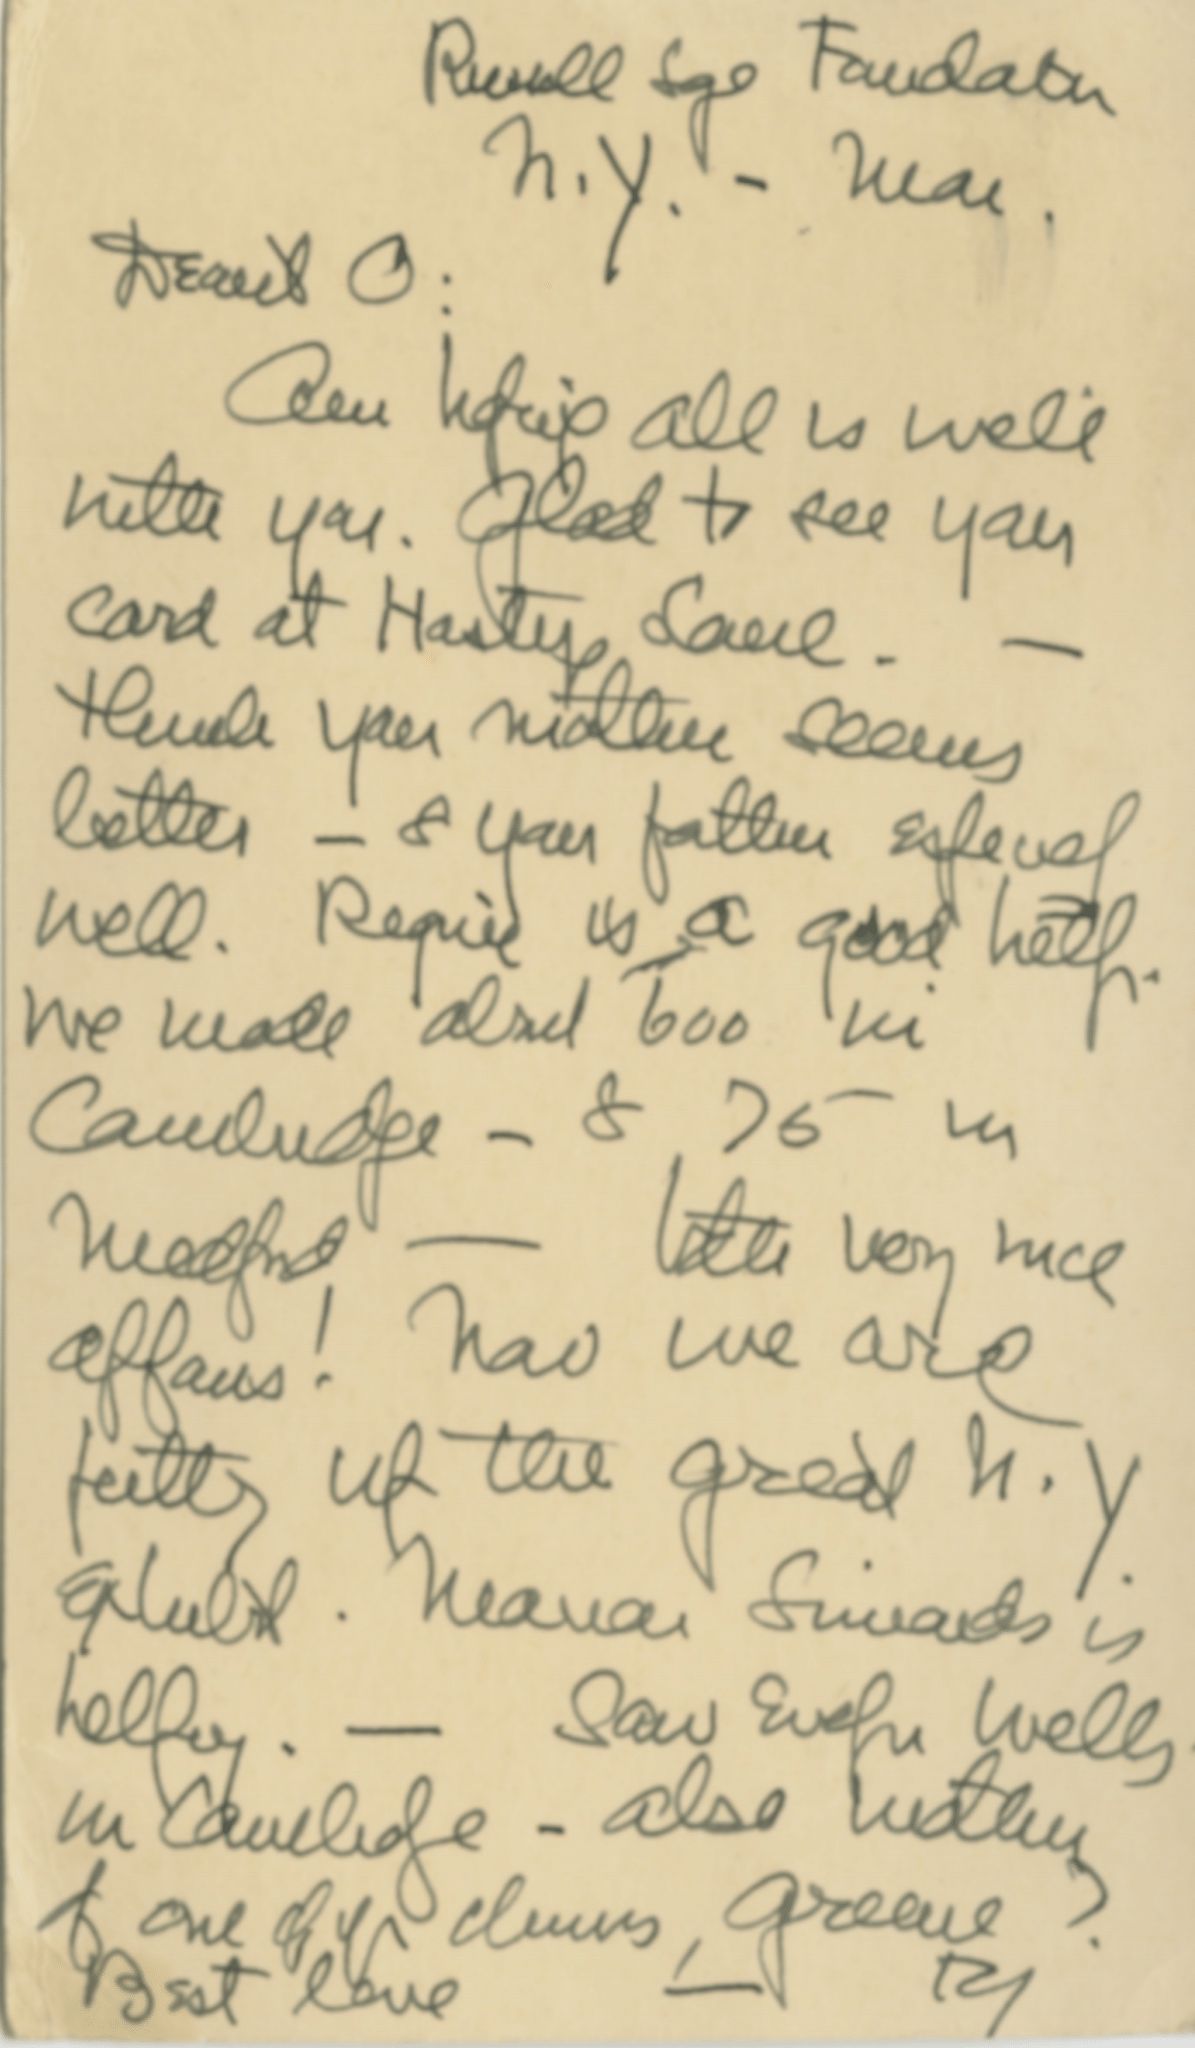 Russell Sage Foundation
N.Y. - Mon.
Dearest O:
Am hoping all is well
with you. Glad to see your
card at Hasty Lane. —
think your mother seems
better - & your father especially
well. Regine is a good help.
We made about 600 in
Cambridge - & 75 in
Medford — both very nice
affairs! Now we are
putting up the great N.Y.
exhibit. Simards is
helping. — Saw Evelyn Wells
in Cambridge - also mother
of one of yr chums, Greene?
Best love —